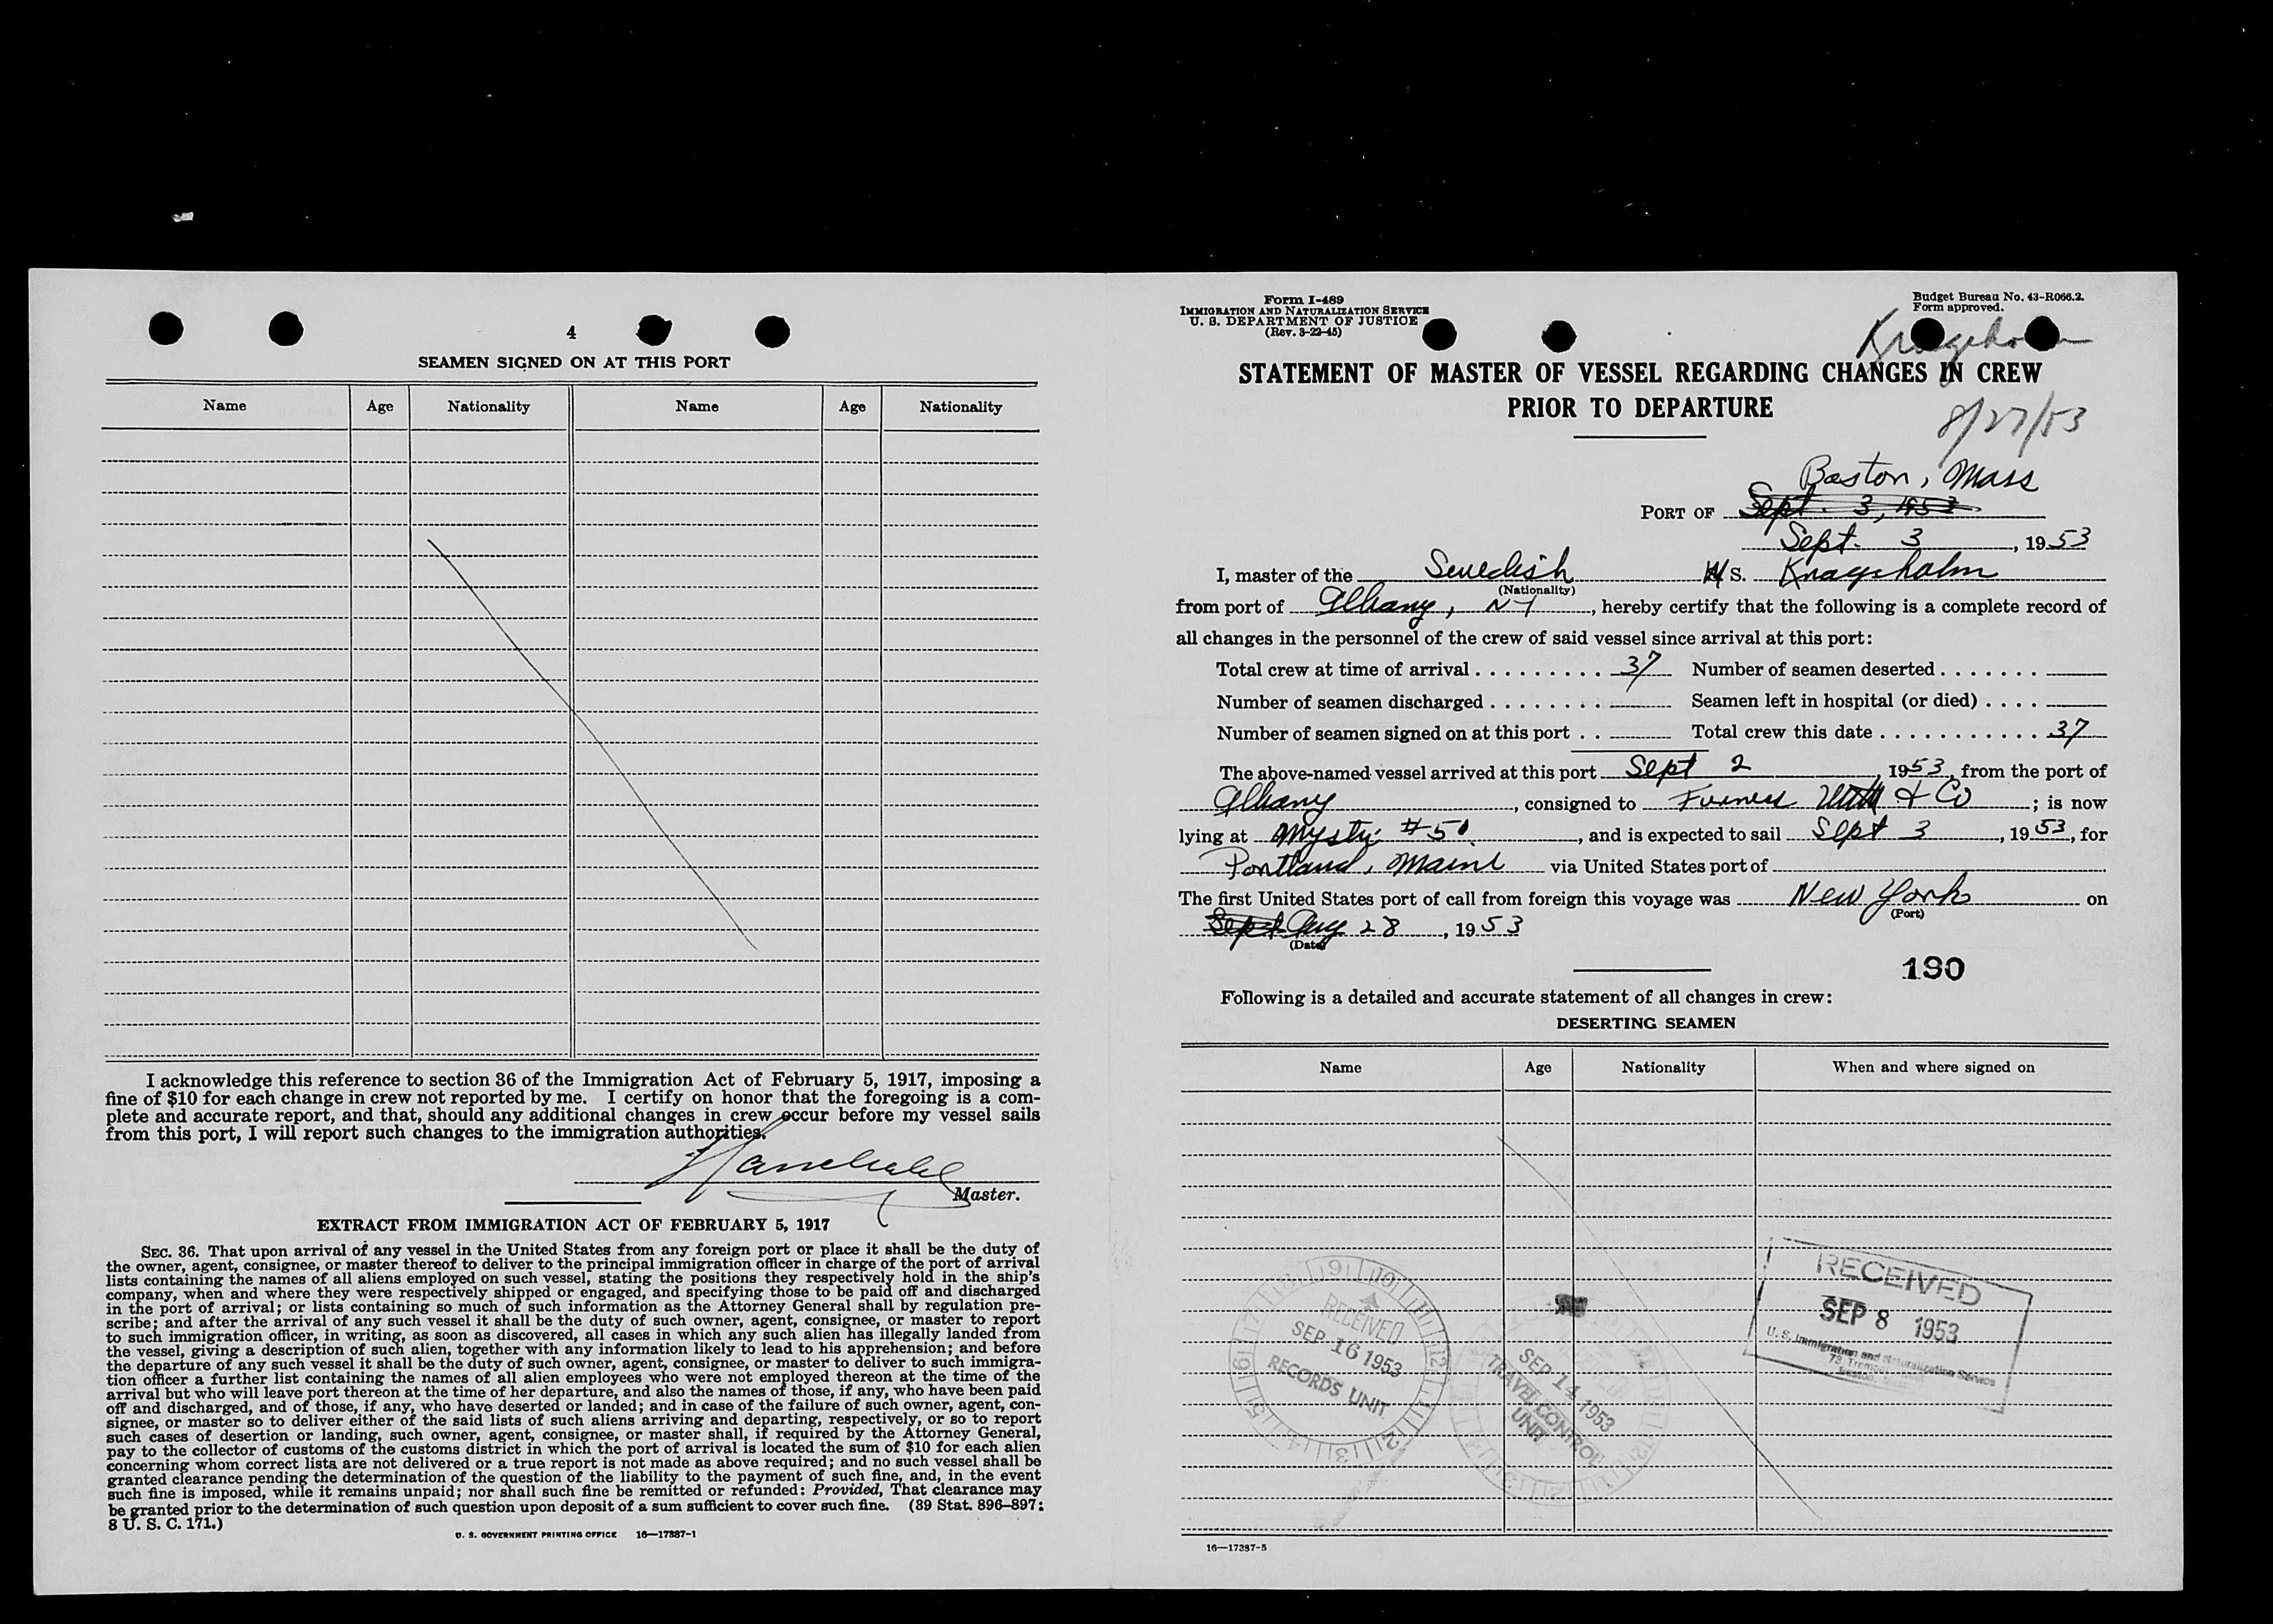 4
SEAMEN SIGNED ON AT THIS PORT
Name Age Nationality Name Age Nationality
I acknowledge this reference to section 36 of the Immigration Act of February 5, 1917, imposing a
fine of $10 for each change in crew not reported by me. I certify on honor that the foregoing is a com-
plete and accurate report, and that, should any additional changes in crew occur before my vessel sails
from this port, I will report such changes to the immigration authorities.
Master.
EXTRACT FROM IMMIGRATION ACT OF FEBRUARY 5, 1917
SEC. 36. That upon arrival of any vessel in the United States from any foreign port or place it shall be the duty of
the owner, agent, consignee, or master thereof to deliver to the principal immigration officer in charge of the port of arrival
lists containing the names of all aliens employed on such vessel, stating the positions they respectively hold in the ship's
company, when and where they were respectively shipped or engaged, and specifying those to be paid off and discharged
in the port of arrival; or lists containing so much of such information as the Attorney General shall by regulation pre-
scribe; and after the arrival of any such vessel it shall be the duty of such owner, agent, consignee, or master to report
to such immigration officer, in writing, as soon as discovered, all cases in which any such alien has illegally landed from
the vessel, giving a description of such alien, together with any information likely to lead to his apprehension; and before
the departure of any such vessel it shall be the duty of such owner, agent, consignee, or master to deliver to such immigra-
tion officer a further list containing the names of all alien employees who were not employed thereon at the time of the
arrival but who will leave port thereon at the time of her departure, and also the names of those, if any, who have been paid
off and discharged, and of those, if any, who have deserted or landed; and in case of the failure of such owner, agent, con-
signee, or master so to deliver either of the said lists of such aliens arriving and departing, respectively, or so to report
such cases of desertion or landing, such owner, agent, consignee, or master shall, if required by the Attorney General,
pay to the collector of customs of the customs district in which the port of arrival is located the sum of $10 for each alien
concerning whom correct lists are not delivered or a true report is not made as above required; and no such vessel shall be
granted clearance pending the determination of the question of the liability to the payment of such fine, and, in the event
such fine is imposed, while it remains unpaid; nor shall such fine be remitted or refunded: Provided, That clearance may
be granted prior to the determination of such question upon deposit of a sum sufficient to cover such fine. (39 Stat. 896–897;
8 U. S. C. 171.)
U. S. GOVERNMENT PRINTING OFFICE 16—17387-1
Form I-489
IMMIGRATION AND NATURALIZATION SERVICE
U. S. DEPARTMENT OF JUSTICE
(Rev. 3-22-45)
Budget Bureau No. 43-R066.2.
Form approved.
Krageholm
STATEMENT OF MASTER OF VESSEL REGARDING CHANGES IN CREW
PRIOR TO DEPARTURE
8/27/53
Boston, Mass
PORT OF Sept. 3, 1953
Sept. 3, 1953
I, master of the Swedish M/S. Krageholm
(Nationality)
from port of Albany, NY, hereby certify that the following is a complete record of
all changes in the personnel of the crew of said vessel since arrival at this port:
Total crew at time of arrival . . . . . . . . . 37 Number of seamen deserted . . . . . . .
Number of seamen discharged . . . . . . . . Seamen left in hospital (or died) . . . .
Number of seamen signed on at this port . . Total crew this date . . . . . . . . . . . . 37
The above-named vessel arrived at this port Sept 2, 1953, from the port of
Albany, consigned to Furness & Co; is now
lying at Mystic #50, and is expected to sail Sept 3, 1953, for
Portland, Maine via United States port of
The first United States port of call from foreign this voyage was New York on
(Port)
Sept Aug 28, 1953
(Date)
190
Following is a detailed and accurate statement of all changes in crew:
DESERTING SEAMEN
Name Age Nationality When and where signed on
RECEIVED
SEP 16 1953
RECORDS UNIT
SEP 14 1953
TRAVEL CONTROL
UNIT
RECEIVED
SEP 8 1953
U. S. Immigration and Naturalization Service
16—17387-5